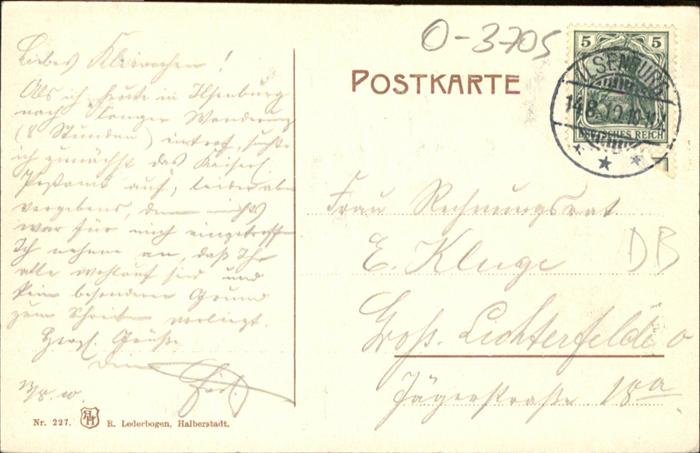 O-3705
POSTKARTE
5 5
ILSENBURG
14.8.10. 10-11V
DEUTSCHES REICH
Liebes !
Als ich heute in Ilsenburg
nach langer Wanderung
(8 Stunden) eintraf, suchte
ich zunächst das Kaiserl.
Postamt auf, leider aber
vergebens, denn nichts
war für mich eingetroffen
Ich nehme an, daß Ihr
alle wohlauf seid und
kein besonderer Grund
zum Schreiben vorliegt.
Herzl. Grüße
Dein
Frau Rechnungsrat
E. Kluge
DB
Gross. Lichterfelde o
Jägerstraße 18a
Nr. 227. R. Lederbogen, Halberstadt.